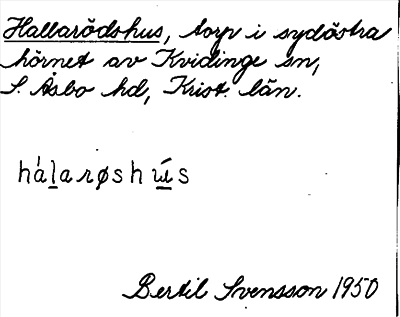 Hallarödshus, torp i sydöstra
hörnet av Kvidinge sn,
S. Åsbo hd, Krist. län.
hálarøshús
Bertil Svensson 1950